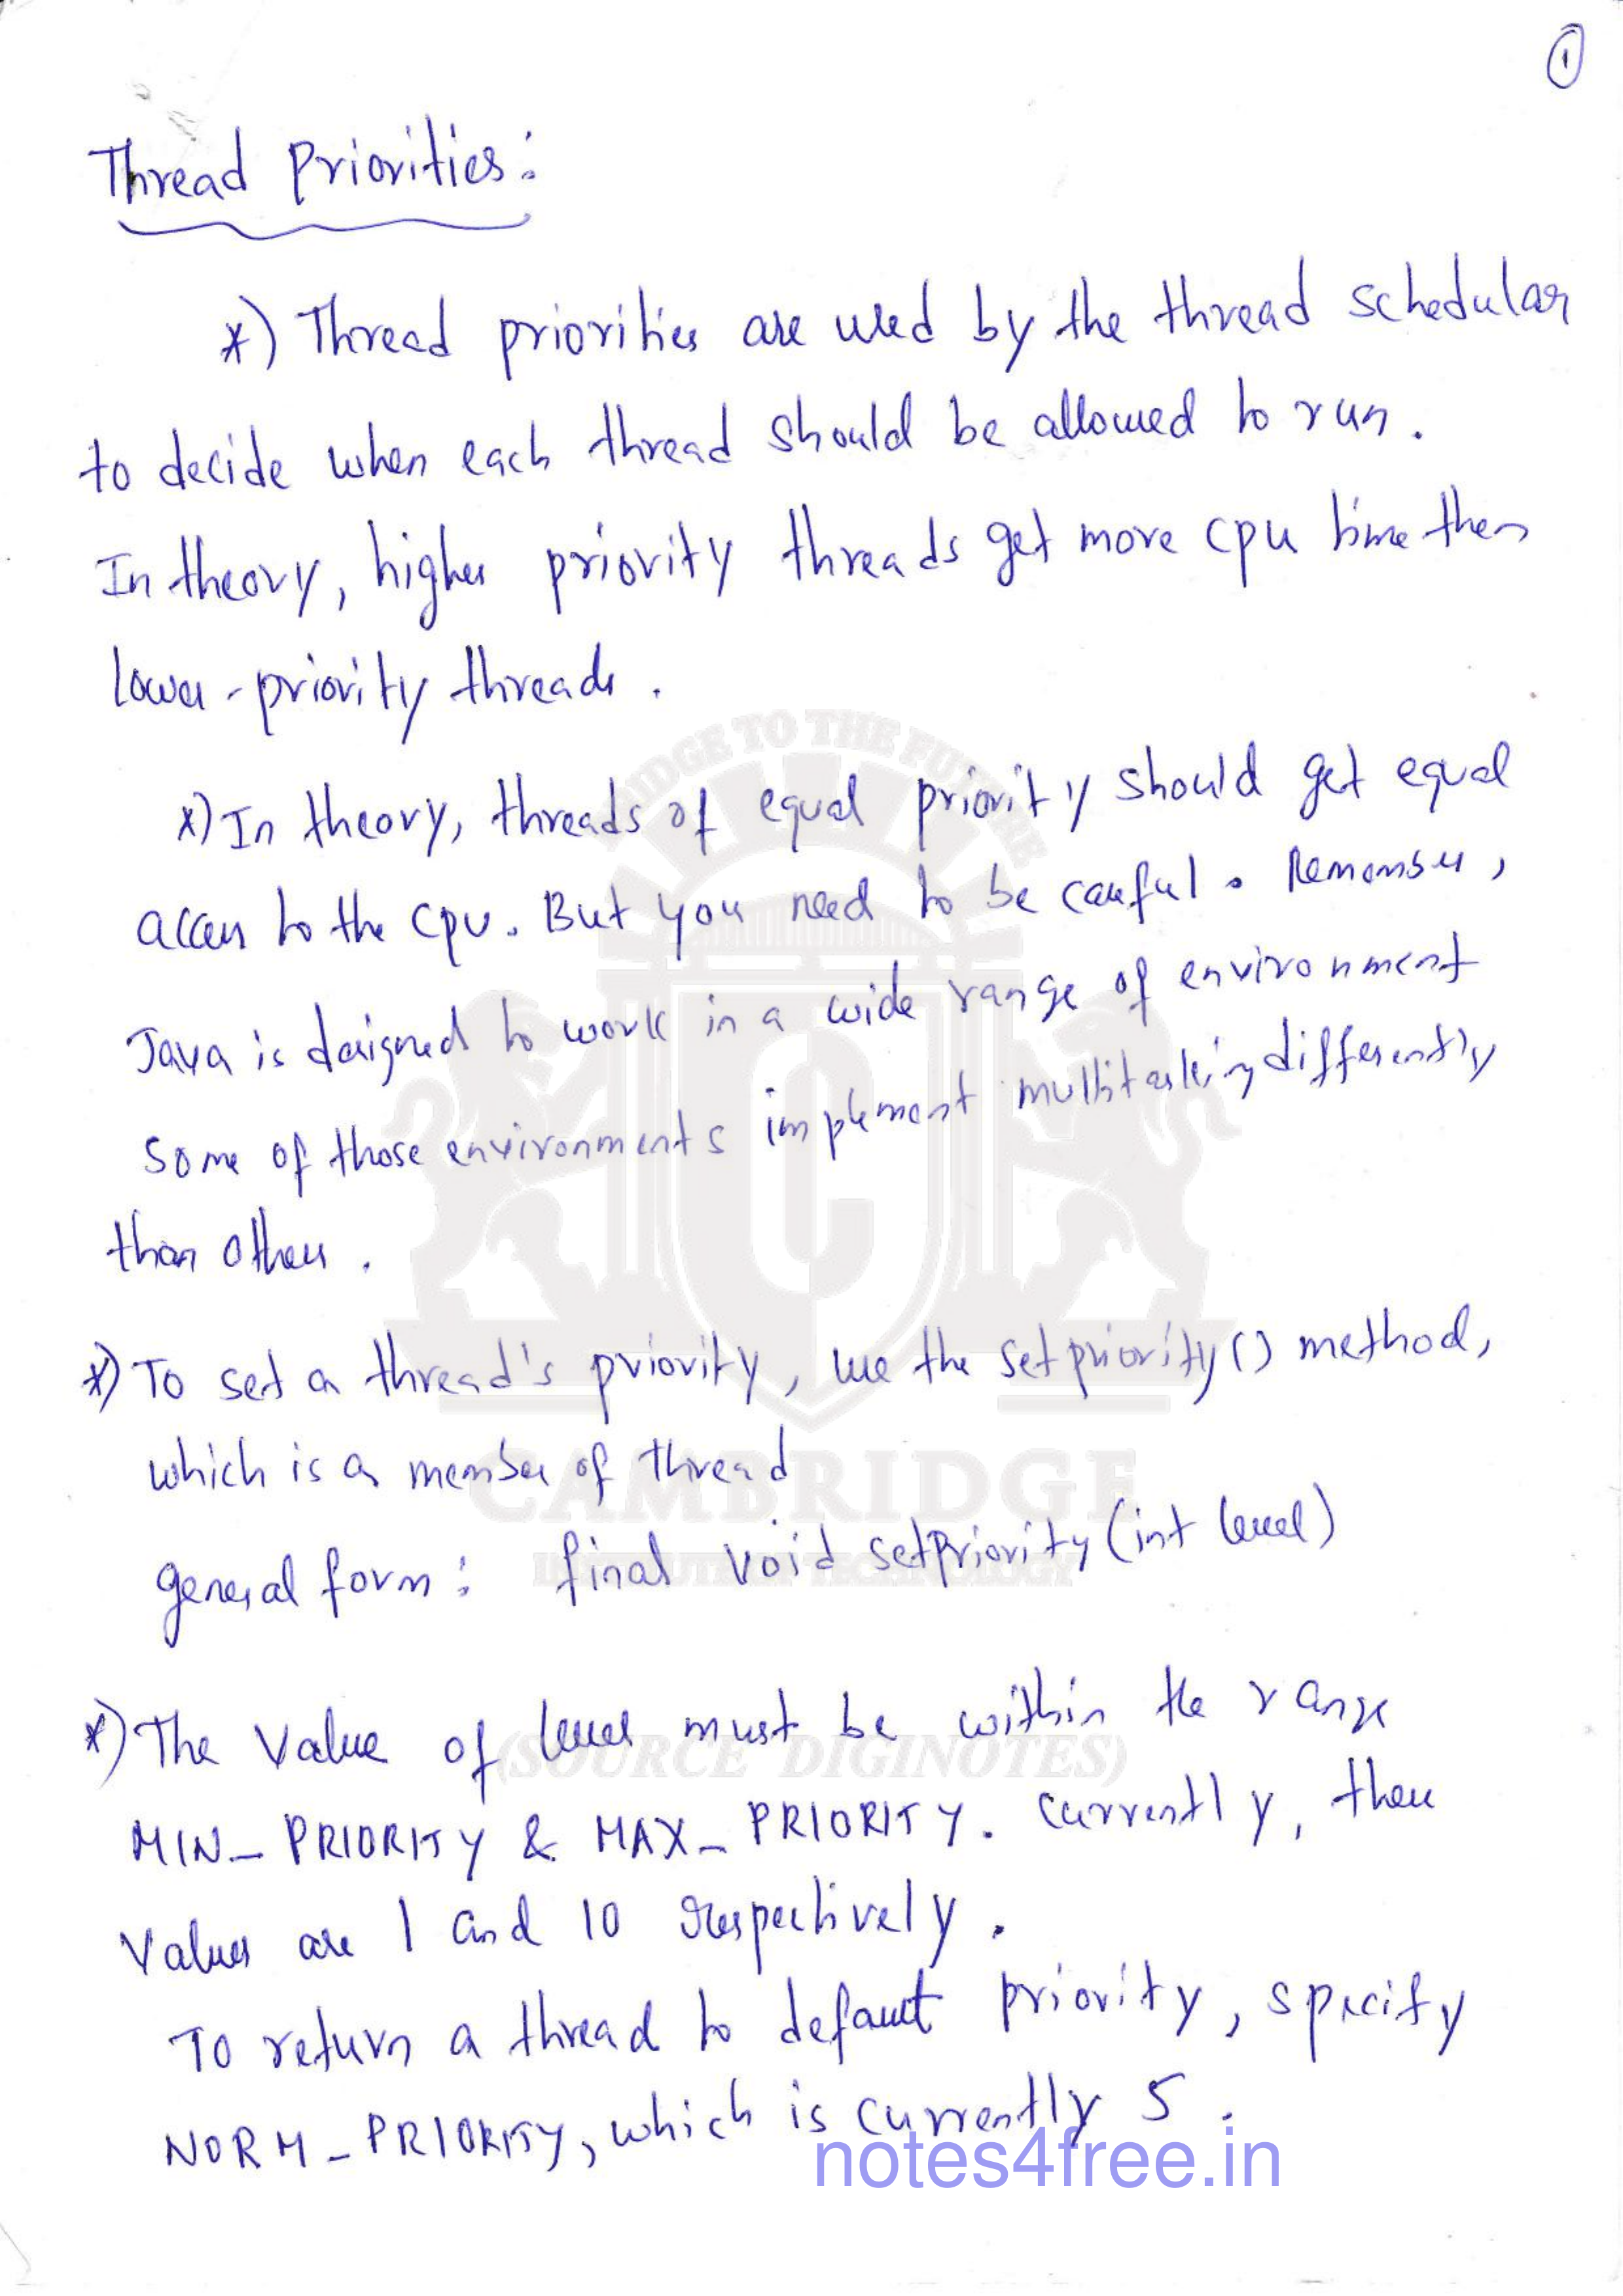 1
Thread Priorities:
*) Thread priorities are used by the thread schedular
to decide when each thread should be allowed to run.
In theory, higher priority threads get more cpu time then
lower-priority threads.
*) In theory, threads of equal priority should get equal
access to the cpu. But you need to be careful. Remember,
Java is designed to work in a wide range of environment
Some of those environments implement multitasking differently
than others.
*) To set a thread's priority, use the setpriority() method,
which is a member of thread
general form: final void setPriority (int level)
*) The value of level must be within the range
MIN_PRIORITY & MAX_PRIORITY. Currently, these
values are 1 and 10 respectively.
To return a thread to default priority, specify
NORM_PRIORITY, which is currently 5.
BRIDGE TO THE FUTURE
C
CAMBRIDGE
INSTITUTE OF TECHNOLOGY
(SOURCE DIGINOTES)
notes4free.in